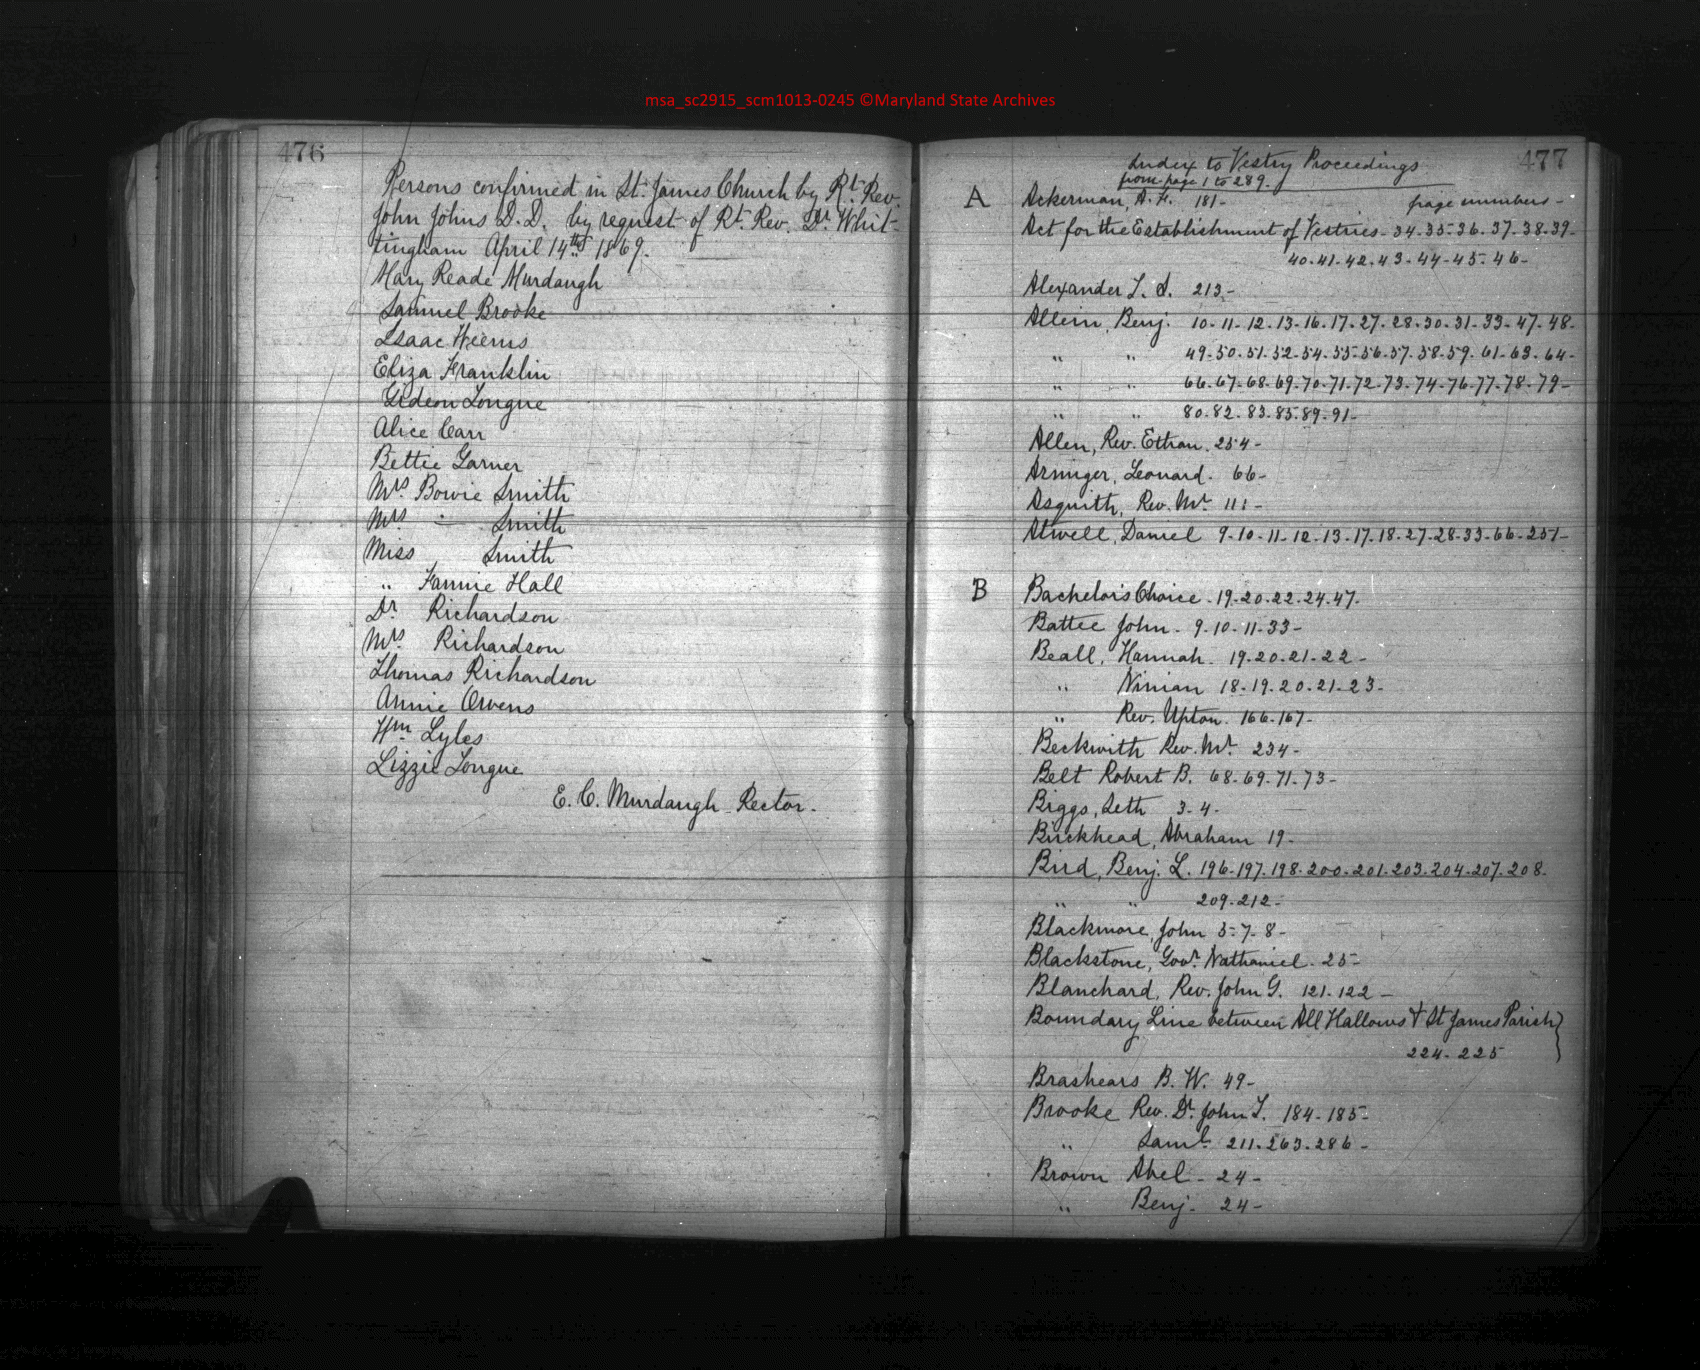 msa_sc2915_scm1013-0245 ©Maryland State Archives
476
Persons confirmed in St. James Church by Rt. Rev.
John Johns D.D. by request of Rt. Rev. Dr. Whit-
tingham April 14th 1869.
Mary Reade Murdaugh
Samuel Brooke
Isaac Weems
Eliza Franklin
Gideon Tongue
Alice Carr
Bettie Garner
Mrs. Bowie Smith
Mrs " Smith
Miss Smith
" Fannie Hall
Dr Richardson
Mrs. Richardson
Thomas Richardson
Annie Owens
Wm Lyles
Lizzie Tongue
E. C. Murdaugh Rector.
477
Index to Vestry Proceedings
from page 1 to 289.
A Ackerman, A. F. 181- page numbers-
Act for the Establishment of Vestries- 34-35-36. 37-38-39-
40-41-42-43-44-45-46-
Alexander T. S. 213-
Allein, Benj. 10-11-12-13-16-17-27-28-30-31-33-47-48-
" " 49-50-51-52-54-55-56-57-58-59-61-63-64-
" " 66-67-68-69-70-71-72-73-74-76-77-78-79-
" " 80-82-83-85-89-91-
Allen, Rev. Ethan. 254-
Arminger, Leonard. 66-
Asquith, Rev. Mr. 111-
Atwell, Daniel 9-10-11-12-13-17-18-27-28-33-66-251-
B Bachelors Choice. 19-20-22-24-47.
Battee John. 9-10-11-33-
Beall, Hannah. 19-20-21-22-
" Ninian 18-19-20-21-23-
" Rev. Upton. 166-167-
Beckwith Rev. Mr. 234-
Belt Robert B. 68-69-71-73-
Biggs, Seth 3-4-
Birckhead, Abraham 19-
Bird, Benj. L. 196-197-198-200-201-203-204-207-208-
" " 209-212-
Blackmore, John 5-7-8-
Blackstone, Govr. Nathaniel. 25-
Blanchard, Rev. John G. 121-122-
Boundary Line between All Hallows & St James Parish}
224-225
Brashears B. W. 49-
Brooke Rev. Dr. John T. 184-185-
" Saml. 211-263-286-
Brown Abel - 24-
" Benj. 24-